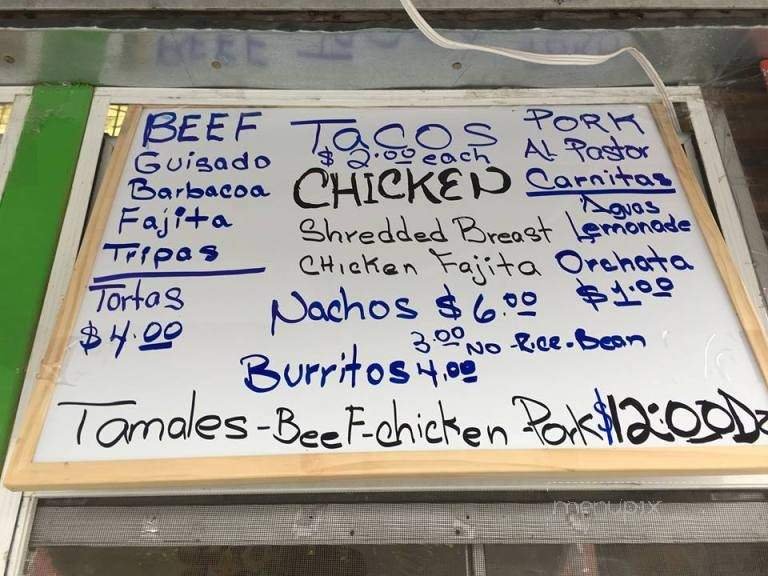 BEEF
Guisado
Barbacoa
Fajita
Tripas
Tortas
$4.00
TACOS
$2.00 each
CHICKEN
Shredded Breast
CHicken Fajita
PORK
Al Pastor
Carnitas
Aguas
Lemonade
Orchata
$1.00
Nachos $6.00
3.00 NO Rice-Bean
Burritos 4.00
Tamales-BeeF-chicken Pork $12:00 Dz
menupix